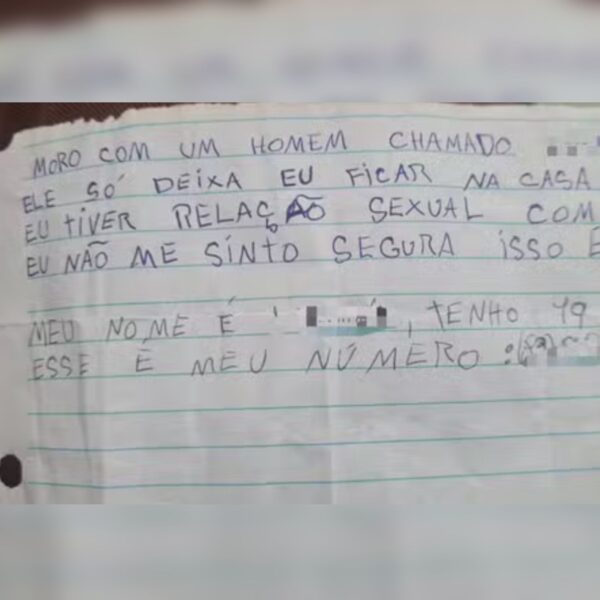 MORO COM UM HOMEM CHAMADO
ELE SÓ DEIXA EU FICAR NA CASA
EU TIVER RELAÇÃO SEXUAL COM
EU NÃO ME SINTO SEGURA ISSO É
MEU NOME É ' , TENHO 19
ESSE É MEU NÚMERO :